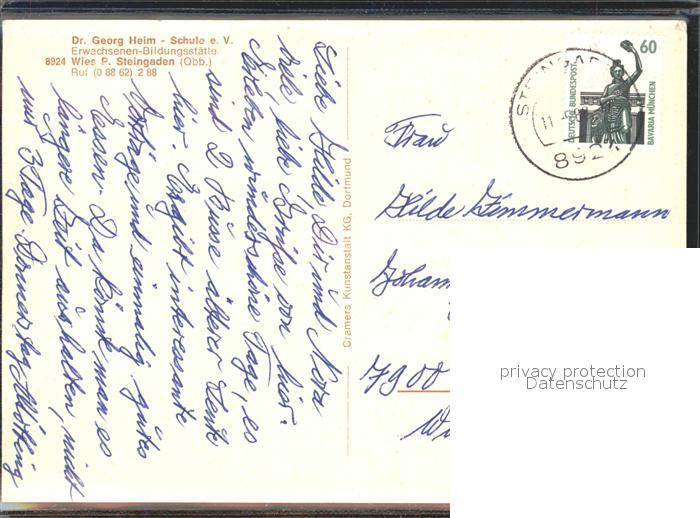 Dr. Georg Heim - Schule e. V.
Erwachsenen-Bildungsstätte
8924 Wies P. Steingaden (Obb.)
Ruf (0 88 62) 2 88
Liebe Hilde Dir und Nora
viele liebe Grüße von hier.
Erleben wunderschöne Tage, es
sind 2 Busse älterer Leute
hier. Es gibt interessante
Vorträge und einmalig gutes
Essen. Da könnte man es
längere Zeit aushalten, nicht
nur 3 Tage. Donnerstag Mittag
Cramers Kunstanstalt KG, Dortmund
60
DEUTSCHE BUNDESPOST
BAVARIA MÜNCHEN
STEINGAD
11
892
Frau
Hilde Zimmermann
Johan
7900
privacy protection
Datenschutz